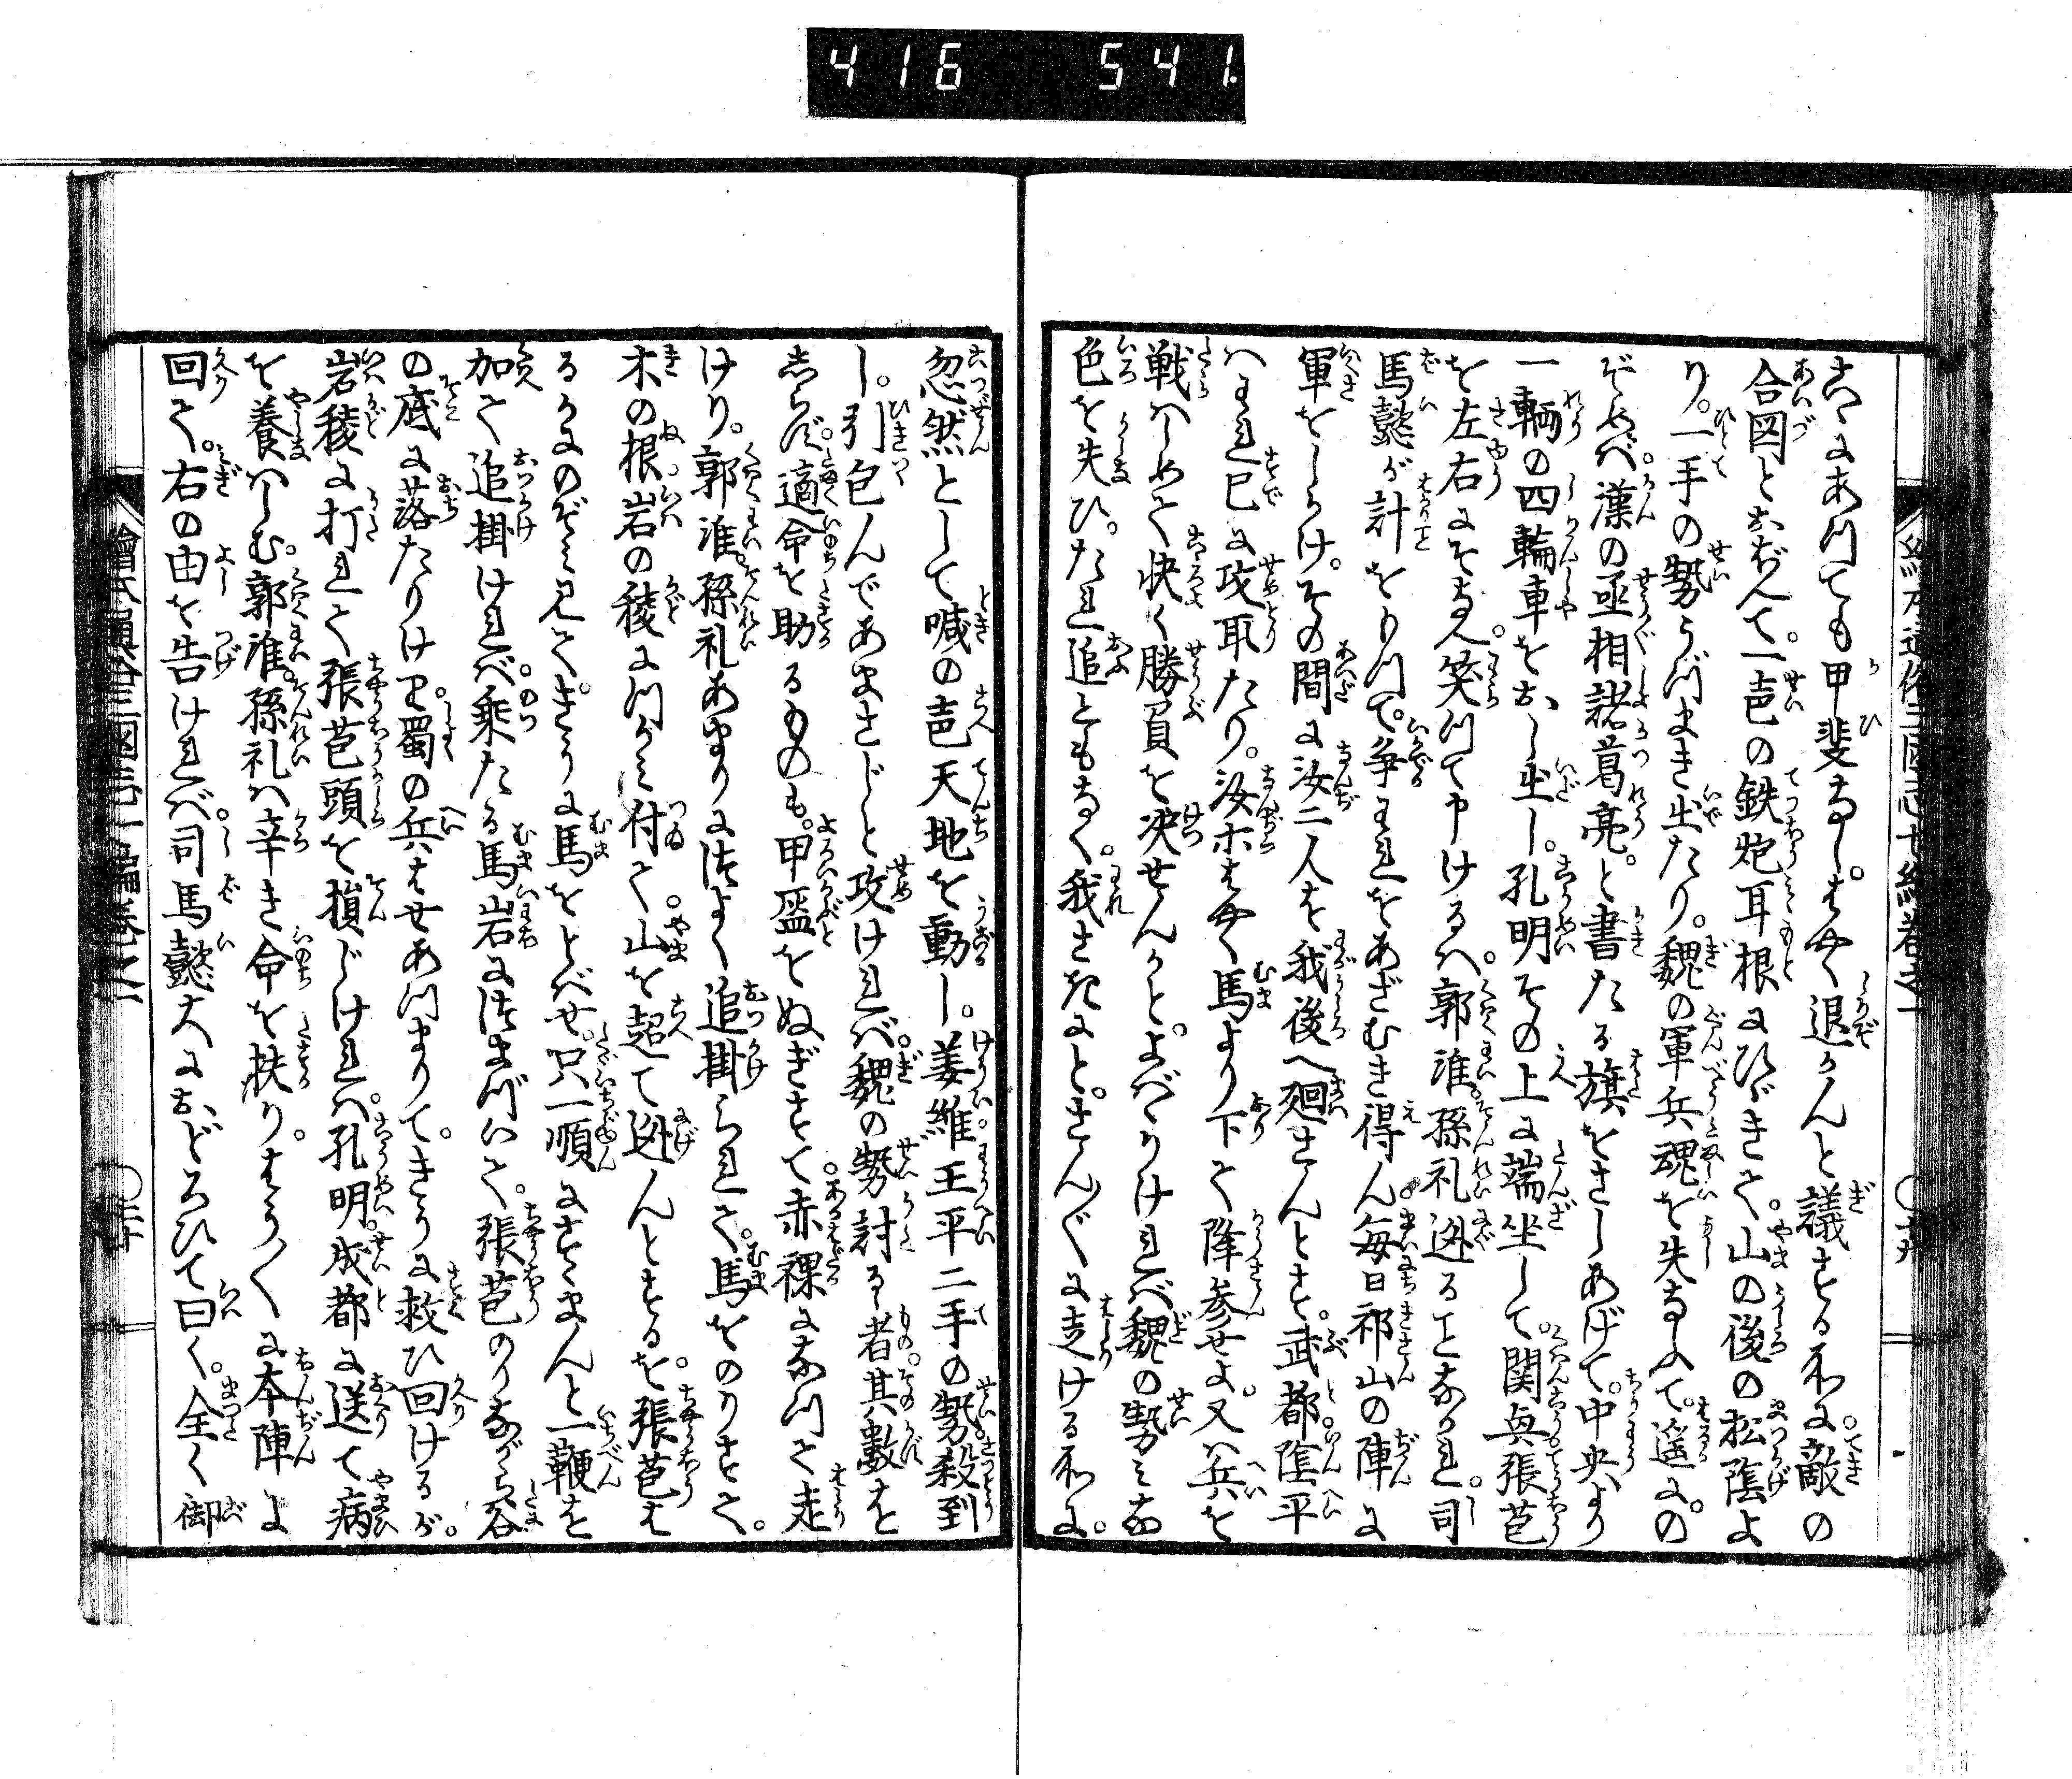 416 541
こゝにあつても甲斐なし。はやく退かんと議する所に。敵の
合図とおぼえて。一声の鉄炮耳根にひゞきて。山の後の松蔭よ
り。一手の勢うづまき出たり。魏の軍兵魂を失なふて。遥にの
ぞめば。漢の丞相諸葛亮。と書たる旗をさしあげて。中央より
一輌の四輪車をおし出し。孔明その上に端坐して。関興張苞
を左右にそなへ。笑つて申けるハ。郭淮。孫礼迯ることなかれ。司
馬懿が計をもつて。争われをあざむき得ん。毎日祁山の陣に
軍をしかけ。その間に汝二人を我後へ廻さんとす。武都。陰平
ハわれ已に攻取たり。汝等はやく馬より下て降参せよ。又ハ兵を
戦ハしめて快く勝負を决せんかと。よばゝりければ魏の勢みな
色を失ひ。たれ追ともなく。我さきにと。さん〴〵に走ける所に。
忽然として喊の声天地を動し。姜維。王平二手の勢。殺到
し。引包んであまさじと攻ければ。魏の勢討るゝ者其數を
しらず。適命を助るものも。甲盔をぬぎすて。赤裸になつて走
けり。郭淮。孫礼あまりにつよく追掛られて。馬をのりすて。
木の根岩の稜につかみ付て。山を超て迯んとするを。張苞は
るかにのぞみ見て。きうに馬をとばせ。只一順にすゝまんと一鞭を
加て追掛ければ。乗たる馬岩につまづいて。張苞のりながら谷
の底に落たりけり。蜀の兵はせあつまりて。きうに救ひ回けるが。
岩稜に打れて張苞頭を損じければ。孔明。成都に送て病
を養ハしむ。郭淮。孫礼ハ辛き命を扶り。はう〳〵に本陣に
回て。右の由を告ければ。司馬懿大におどろひて曰く。全く御